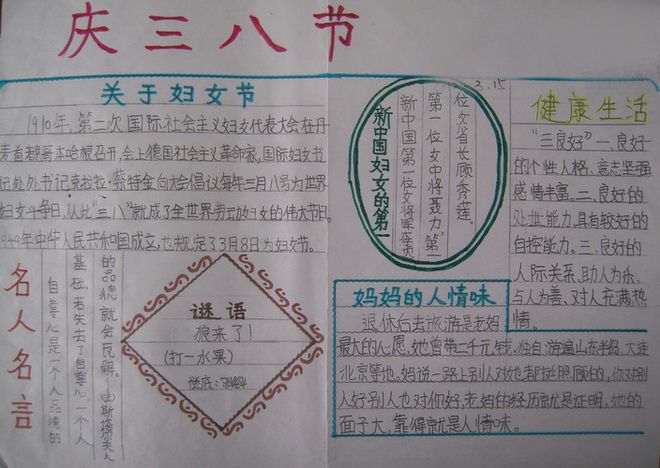 庆三八节
关于妇女节
1910年,第二次国际社会主义妇女代表大会在丹
麦首都哥本哈根召开,会上德国社会主义革命家,国际妇女书
记处处书记克拉拉·蔡特金向大会倡议每年三月八号为世界
妇女斗争日,从此"三八"就成了全世界劳动妇女的伟大节日。
1949年中华人民共和国成立,也规定了3月8日为妇女节。
名人名言
自尊心是一个人品德的
基础,若失去了自尊心,一个人
的品德就会瓦解。
谜语
狼来了!
(打一水果)
谜底:
新中国妇女的第一
新中国第一位女将军李贞
第一位女中将聂力"第一
位女省长顾秀莲。
3.15
健康生活
"三良好"一、良好
的个性人格、意志坚强
感情丰富。二、良好的
处世能力,具有较好的
自控能力。三、良好的
人际关系,助人为乐,
与人为善、对人充满热
情。
妈妈的人情味
退休后去旅游是老妈
最大的心愿,她曾带二千元钱,独自游遍山东半岛、大连
北京等地。妈说一路上别人对她都挺照顾的,你对别
人好别人也对你好。老妈的经历就是证明,她的
面子大,靠得就是人情味。